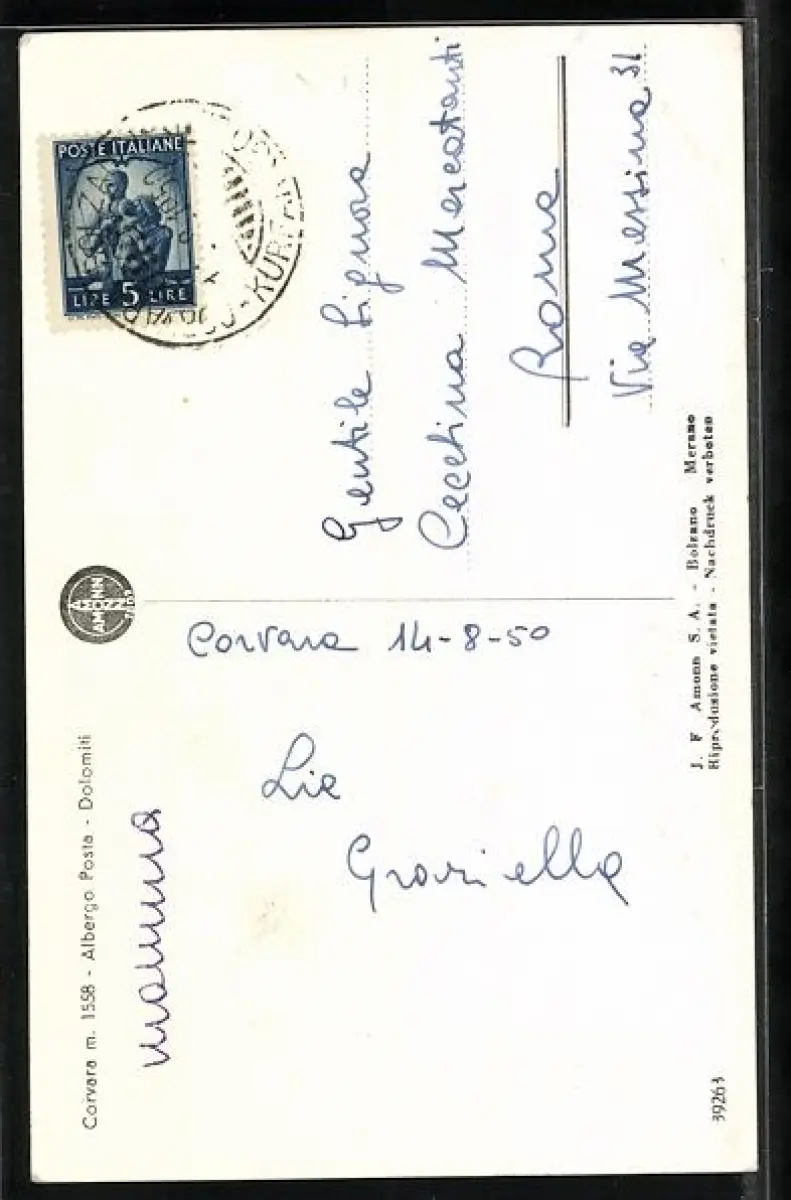 Corvara m. 1558 - Albergo Posta - Dolomiti
mamma
Corvara 14-8-50
Lia
Graziella
39263
AMONN
J. F. Amonn S. A. - Bolzano Merano
Riproduzione vietata - Nachdruck verboten
POSTE ITALIANE
LIRE 5 LIRE
Gentile Signora
Cecchina Mercatanti
Roma
Via Messina 31